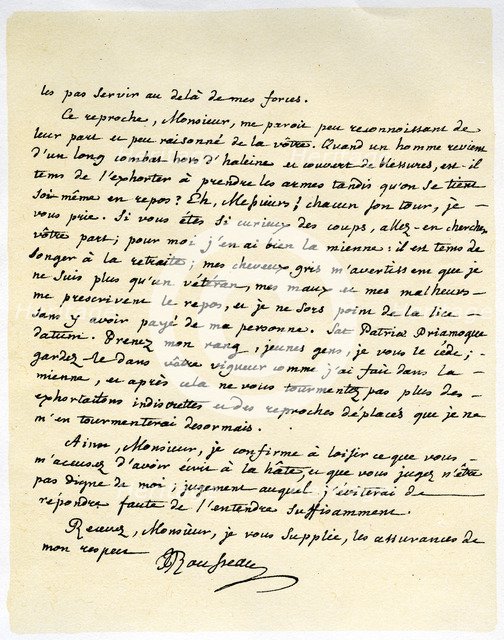 les pas servir au delà de mes forces.
Ce reproche, Monsieur, me paroit peu reconnoissant de
leur part et peu raisonné de la vôtre. Quand un homme revient
d'un long combat hors d'haleine et couvert de blessures, est-il
tems de l'exhorter à prendre les armes tandis qu'on se tient
soi-même en repos? Eh, Messieurs! chacun son tour, je
vous prie. Si vous êtes si curieux des coups, allez-en chercher
vôtre part; pour moi j'en ai bien la mienne: il est tems de
songer à la retraite; mes cheveux gris m'avertissent que je
ne suis plus qu'un vétéran, mes maux et mes malheurs
me prescrivent le repos, et je ne sors point de la lice
sans y avoir payé de ma personne. Sat Patriæ Priamoque
datum. Prenez mon rang, jeunes gens, je vous le céde;
gardez-le dans vôtre vigueur comme j'ai fait dans la
mienne, et après cela ne vous tourmentez pas plus des
exhortations indiscrettes et des reproches déplacés que je ne
m'en tourmenterai desormais.
Ainsi, Monsieur, je confirme à loisir ce que vous
m'accusez d'avoir écrit à la hâte, et que vous jugez n'être
pas digne de moi; jugement auquel j'éviterai de
repondre faute de l'entendre suffisamment.
Recevez, Monsieur, je vous supplie, les assurances de
mon respect JJRousseau